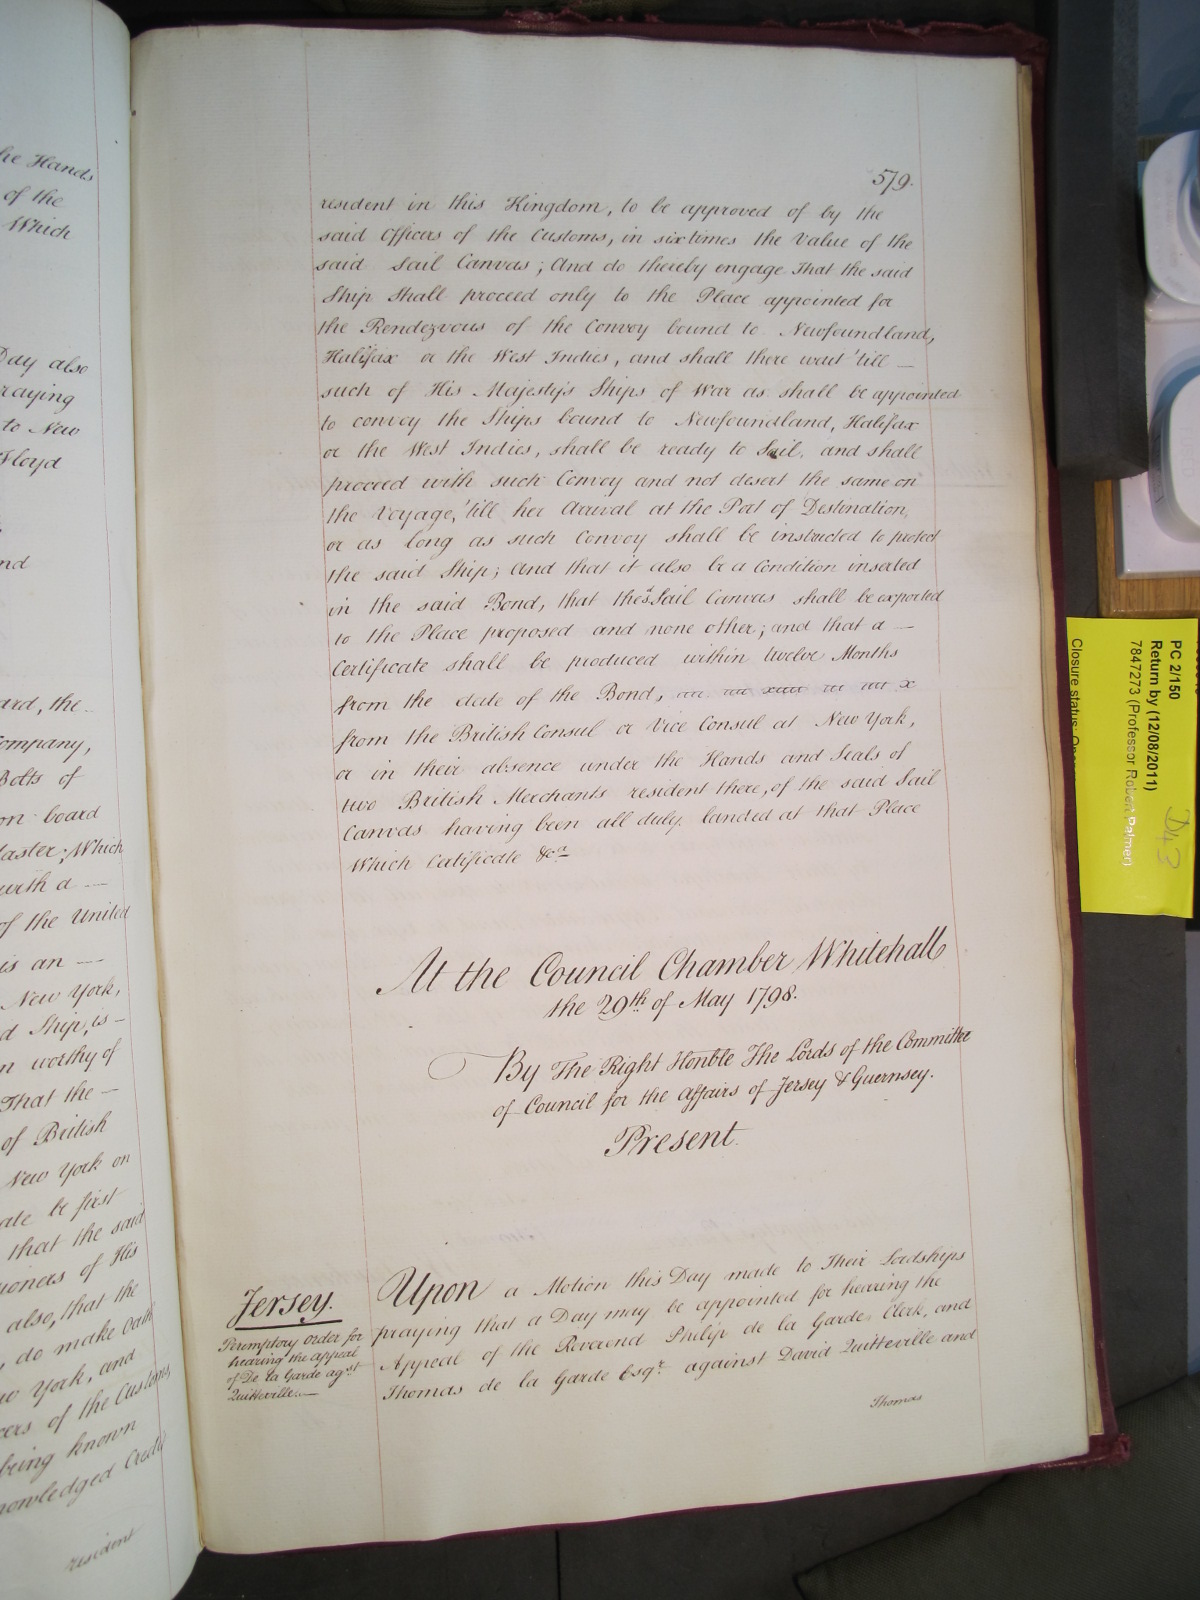 he Hands
of the
Which
Day also
raying
to New
Floyd
nd
ard, the
Company,
Bolts of
on board
Master; Which
with a
of the United
is an
New York,
d Ship, is
n worthy of
That the
of British
New York on
ate be first
that the said
ioners of His
also, that the
, do make Oath
w York, and
cers of the Customs,
being known
nowledged Credit
resident
579.
resident in this Kingdom, to be approved of by the
said Officers of the Customs, in six times the Value of the
said Sail Canvas; And do thereby engage That the said
Ship Shall proceed only to the Place appointed for
the Rendezvous of the Convoy bound to Newfoundland,
Halifax or the West Indies, and shall there wait 'till
such of His Majesty's Ships of War as shall be appointed
to convoy the Ships bound to Newfoundland, Halifax
or the West Indies, shall be ready to Sail, and shall
proceed with such Convoy and not desert the same on
the Voyage, 'till her Arrival at the Port of Destination,
or as long as such Convoy shall be instructed to protect
the said Ship; And that it also be a Condition inserted
in the said Bond, that the sd. Sail Canvas shall be exported
to the Place proposed and none other; and that a
Certificate shall be produced within twelve Months
from the date of the Bond,
from the British Consul or Vice Consul at New York,
or in their absence under the Hands and Seals of
two British Merchants resident there, of the said Sail
Canvas having been all duly landed at that Place
Which Certificate &ca
At the Council Chamber Whitehall
the 29th of May 1798.
By The Right Honble The Lords of the Committee
of Council for the Affairs of Jersey & Guernsey.
Present.
Jersey.
Peremptory Order for
hearing the Appeal
of De la Garde agst
Quitteville.
Upon a Motion this Day made to Their Lordships
praying that a Day may be appointed for hearing the
Appeal of the Reverend Philip de la Garde, Clerk, and
Thomas de la Garde Esqr. against David Quitteville and
Thomas
PC 2/150
Return by (12/08/2011)
7847273 (Professor Robert Palmer)
Closure status: Open
D43